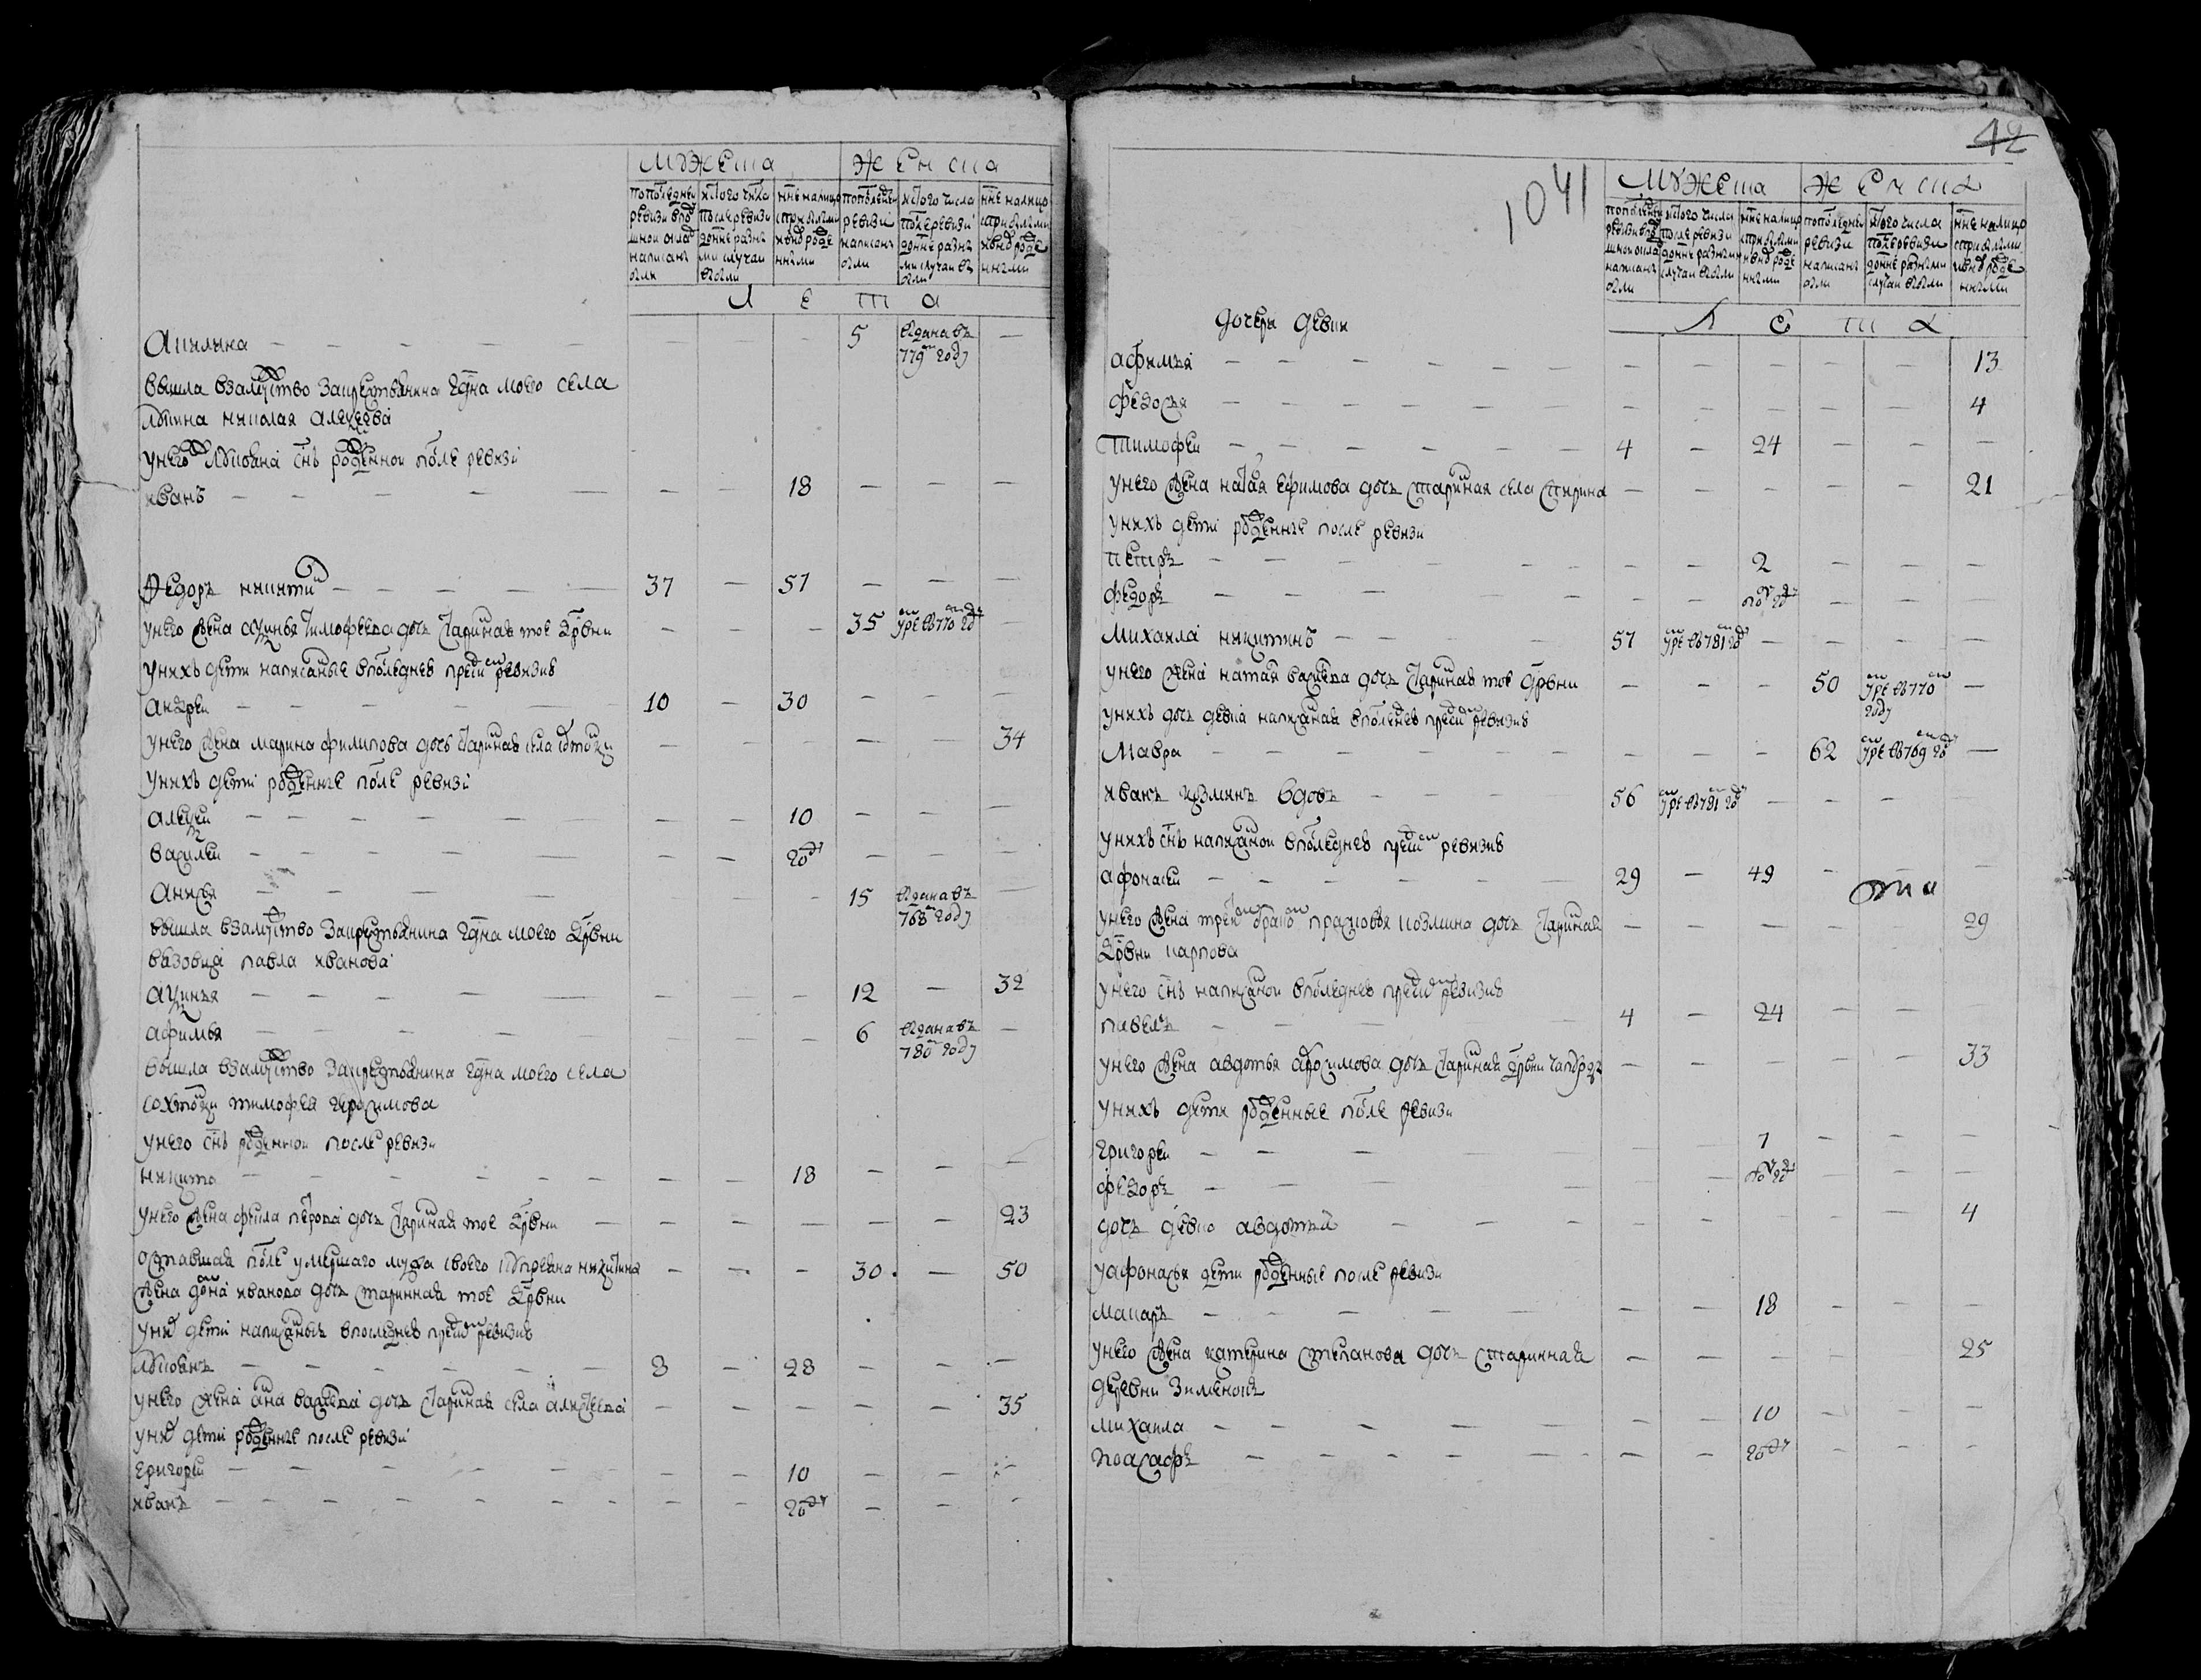 мужеска женска
по последней ревизии в подушной оклад написаны были
ис того числа после ревизии до нне разными случаи выбыли
нне налицо с прибылыми и вновь рожденными
по последней ревизии написаны были
ис того числа после ревизии до нне разными случаи выбыли
нне налицо с прибылыми и вновь рожденными
л е т а
Акилина — — — — — 5 выдана въ 779м году —
вышла взамужство за крестьянина една моего села
николая алексеева
у него снъ рожденной после ревизи
иванъ — — — — — 18 — — —
Федоръ никитин — — — — 37 — 57 — — —
у него жена аксинья тимофеева дочь старинная тое дрвни — — — 35 умре въ 770м году —
у нихъ дети написаные в последнее пред сею ревизие
андреи — — — — 10 — 30 — — —
у него жена марина филипова дочь старинная села — — — — — 34
у нихъ дети рожденные после ревизи
алексеи — — — — — — — 10 — — —
василеи — — — — — — — год — — —
анисья — — — — — — 15 выдана въ 768м году —
вышла взамужство за крестьянина една моего дрвни
павла иванова
аксинья — — — — — — — 12 — 32
афимья — — — — — — — 6 выдана въ 780м году —
вышла взамужство за крестьянина една моего села
тимофея герасимова
у него снъ рожденнои после ревизи
никита — — — — — — — 18 — — —
у него жена фекла петрова дочь старинная тое дрвни — — — — — — 23
оставшая после умершаго мужа своего никитина — — — 30 — 50
жена дона иванова дочь старинная тое дрвни
у ней дети написаные в последнее пред сею ревизие
— — — — — 8 — 28 — — —
у него жена ана василева дочь старинная села алексеева — — — — — 35
у них дети рожденые после ревизи
григореи — — — — — — — 10 — — —
иванъ — — — — — — — год — — —
42
1041
мужеска женска
по последней ревизии в подушной оклад написаны были
ис того числа после ревизи до нне разными случаи выбыли
нне налицо с прибылыми и вновь рожденными
по последнеи ревизи написаны были
ис того числа после ревизи до нне разными случаи выбыли
нне налицо с прибылыми и вновь рожденными
л е т а
дочери девки
афимья — — — — — — — — — — — 13
федосья — — — — — — — — — — — 4
Тимофеи — — — — — — 4 — 24 — — —
у него жена наталя ефимова дочь стариная села спирина — — — — — 21
у нихъ дети рожденные после ревизи
петръ — — — — — — — 2 — — —
федоръ — — — — — — — полгода — — —
михаила никитинъ — — — — 57 умре въ 781м году — — — —
у него жена наталя василева дочь старинная тое дрвни — — — 50 умре въ 770м году —
у нихъ дочь девка написаная в последнее пред сею ревизие
Мавра — — — — — — — — — 62 умре въ 769 году —
иванъ козминъ вдовъ — — — 56 умре въ 781 году — — — —
у нихъ снъ написанои в последнее пред сею ревизие
афонасеи — — — — — — 29 — 49 — — —
у него жена третьего брака прасковья козмина дочь старинная — — — — — 29
дрвни карпова
у него снъ написанои в последнее пред сею ревизие
павелъ — — — — — 4 — 24 — —
у него жена авдотья дочь старинная дрвни — — — — — 33
у нихъ дети рожденные после ревизи
григореи — — — — — 7 — — —
федоръ — — — — — полгода — — —
дочь девка авдотья — — — — — — — — — 4
у афонасья дети рожденные после ревизи
макаръ — — — — — — — 18 — — —
у него жена катерина степанова дочь старинная — — — — — 25
деревни зименокъ
михаила — — — — — — — 10 — — —
иоасафъ — — — — — — — год — — —